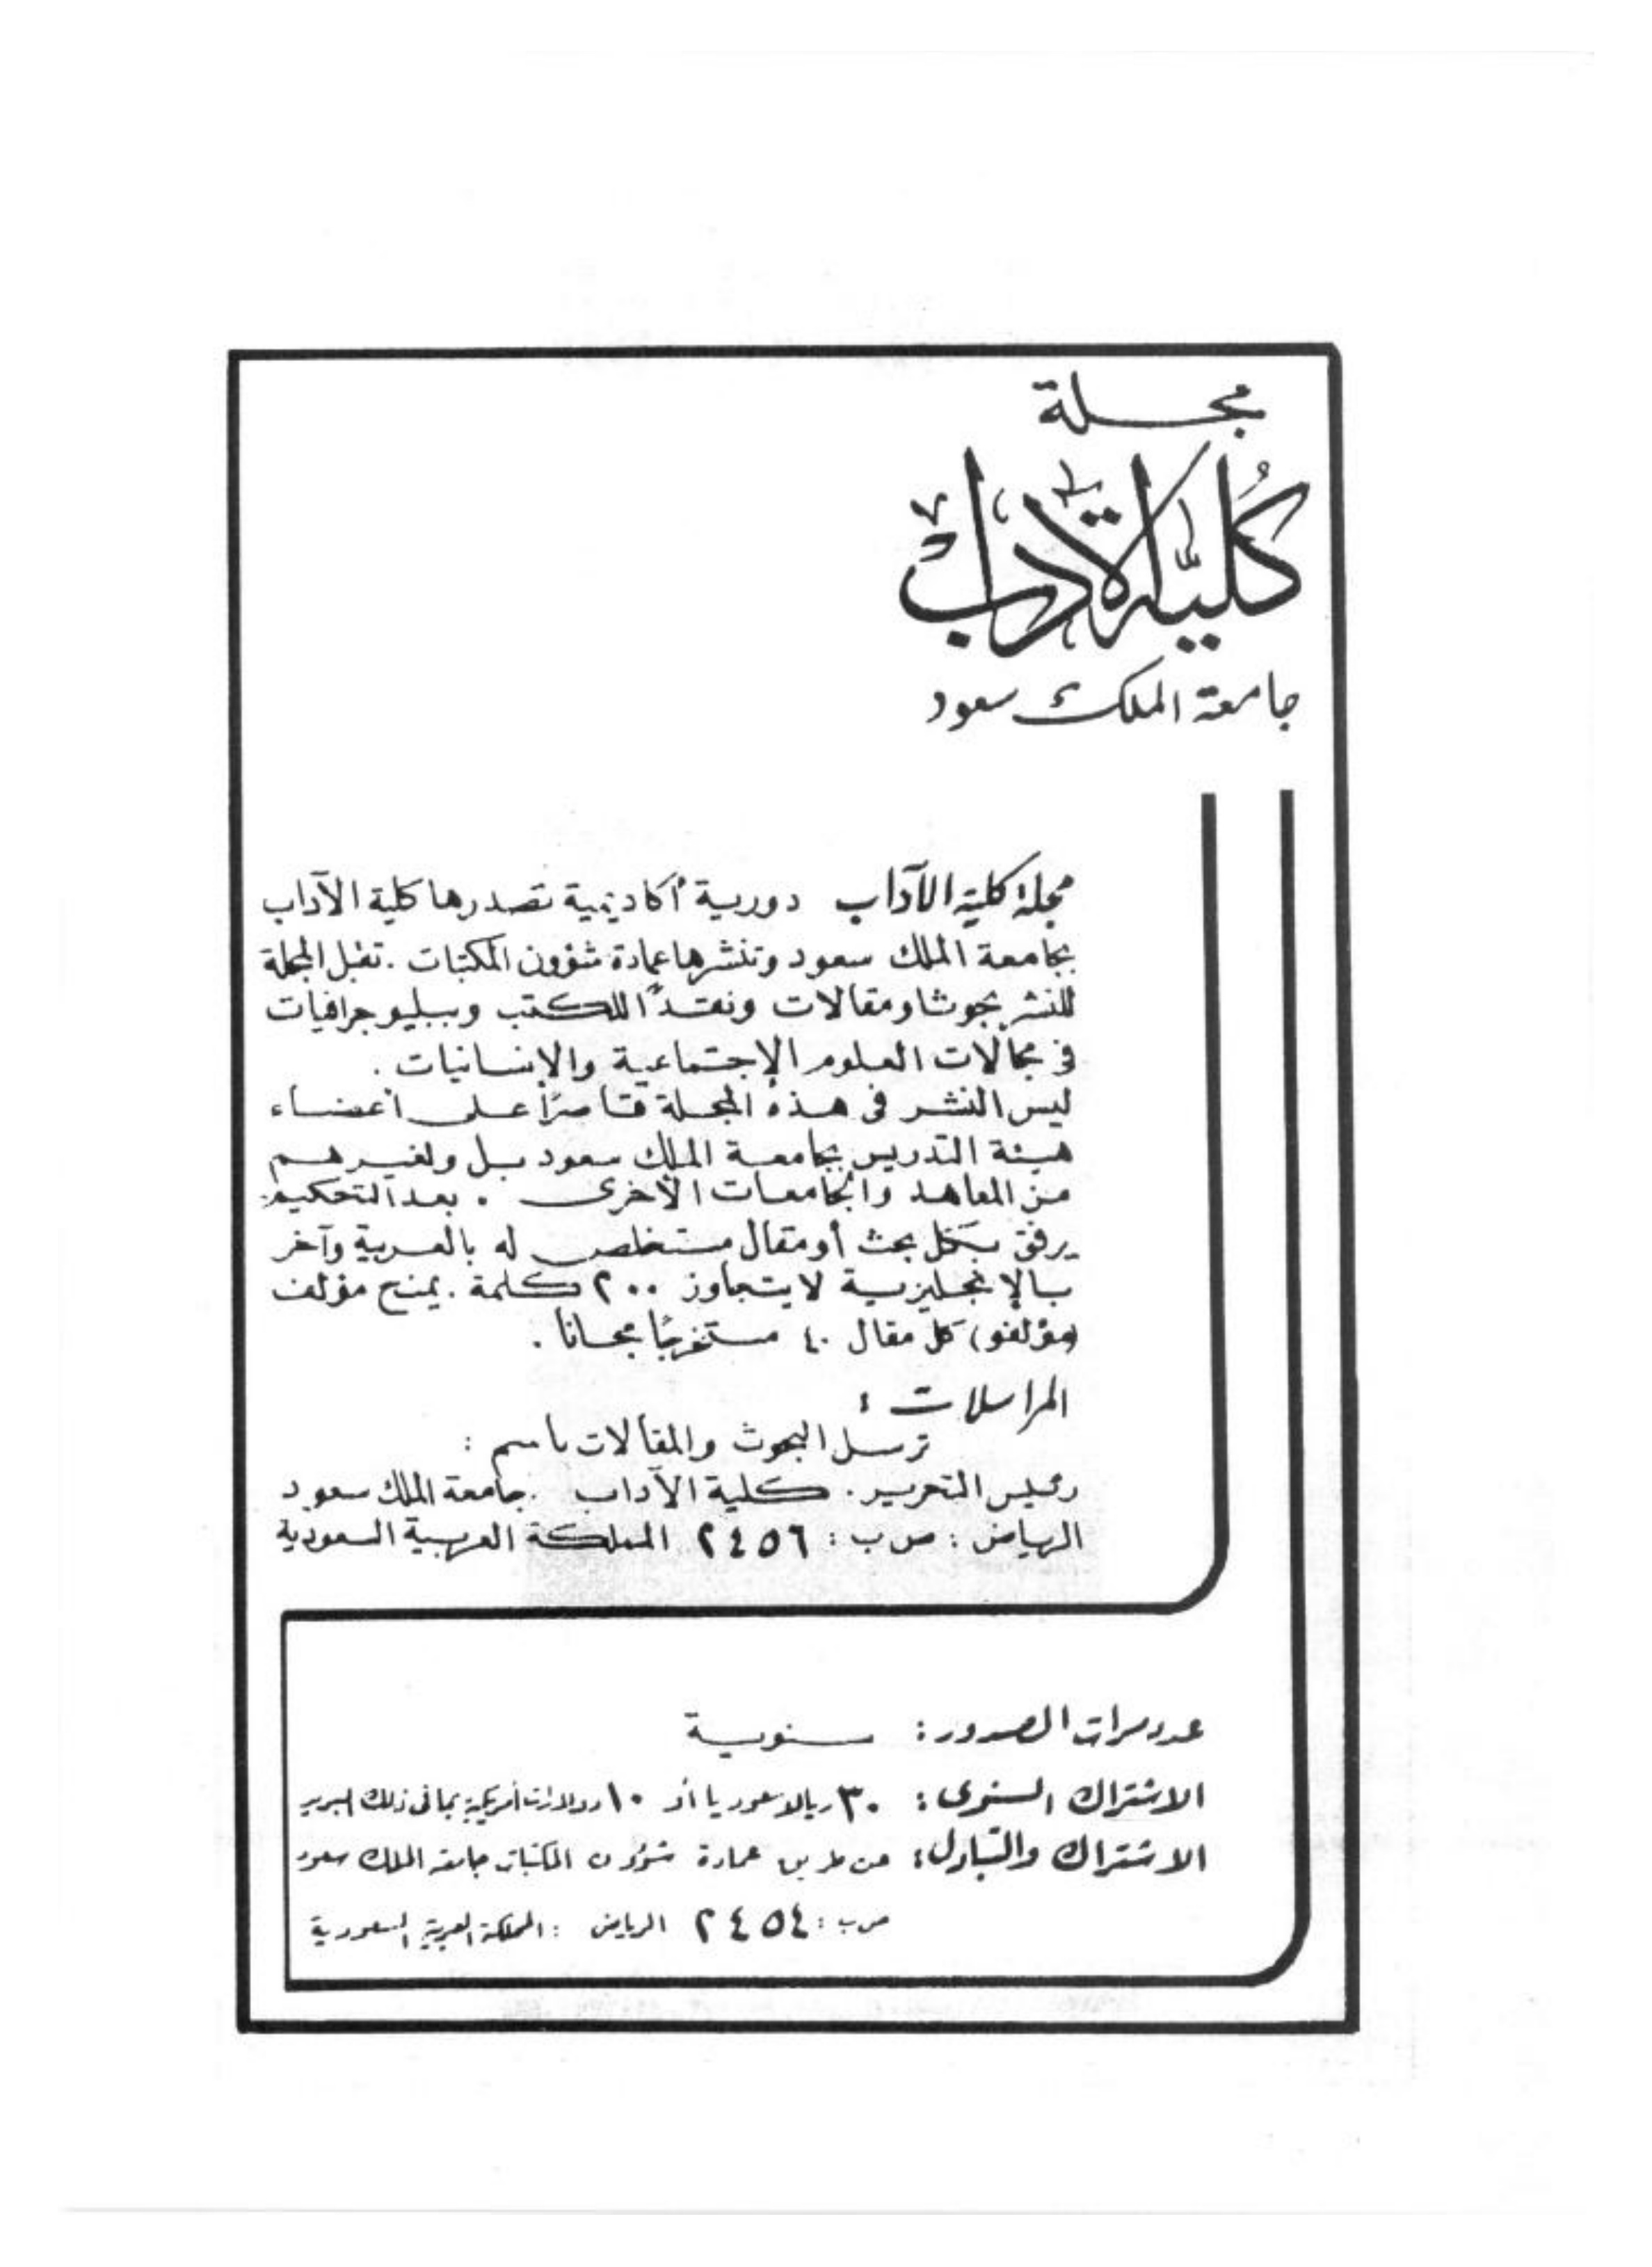 مجلة
كُليّة الآداب
جامعة الملك سعود
مجلة كلية الآداب دورية أكاديمية تصدرها كلية الآداب
بجامعة الملك سعود وتنشرها عمادة شؤون المكتبات . تقبل المجلة
للنشر بحوثا ومقالات ونقداً للكتب وببليوجرافيات
في مجالات العلوم الإجتماعية والإنسانيات .
ليس النشر في هذه المجلة قاصراً على أعضاء
هيئة التدريس بجامعة الملك سعود بل ولغيرهم
من المعاهد والجامعات الأخرى . بعد التحكيم
يرفق بكل بحث أو مقال مستخلص له بالعربية وآخر
بالإنجليزية لا يتجاوز ٢٠٠ كلمة . يمنح مؤلف
(مؤلفو) كل مقال ٤٠ مستخرجًا مجانا .
المراسلات :
ترسل البحوث والمقالات باسم :
رئيس التحرير . كلية الآداب . جامعة الملك سعود
الرياض : ص ب : ٢٤٥٦ المملكة العربية السعودية
عدد مرات الصدور : سنوية
الاشتراك السنوى : ٣٠ ريالا سعوديا أو ١٠ دولارات أمريكية بما فى ذلك البريد
الاشتراك والتبادل : عن طريق عمادة شؤون المكتبات جامعة الملك سعود
ص ب : ٢٤٥٤ الرياض : المملكة العربية السعودية